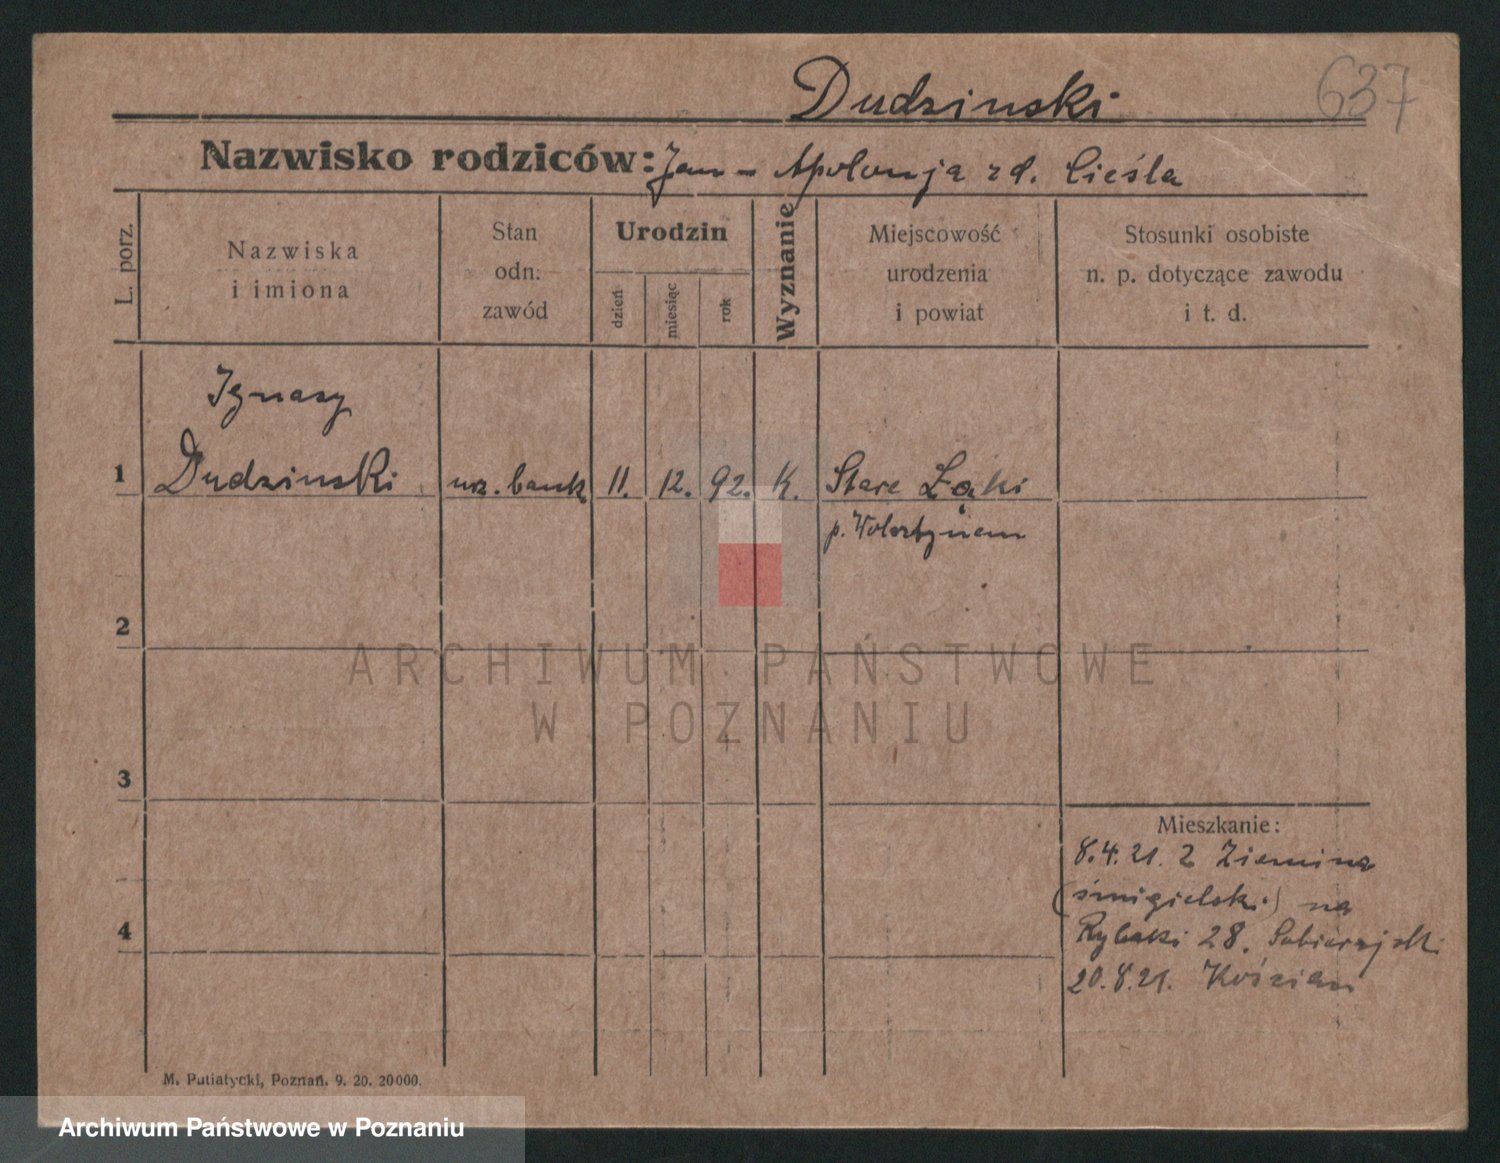 Dudzinski
637
Nazwisko rodziców: Jan – Apolonja zd. Cieśla
L. porz.
Nazwiska
i imiona
Stan
odn.
zawód
Urodzin
dzień
miesiąc
rok
Wyznanie
Miejscowość
urodzenia
i powiat
Stosunki osobiste
n. p. dotyczące zawodu
i t. d.
Ignacy
1 Dudzinski urz. bank. 11. 12. 92. K. Stare Łąki
p. Wolsztynem
2
3
4
Mieszkanie:
8.4.21. z Ziemina
(śmigielski) na
Rybaki 28.
20.8.21. Kościan
M. Putiatycki, Poznań. 9. 20. 20000.
ARCHIWUM PAŃSTWOWE
W POZNANIU
Archiwum Państwowe w Poznaniu